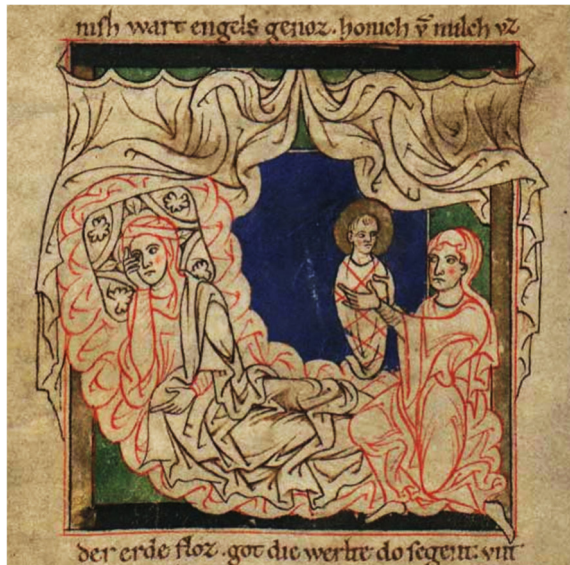 nish wart engels genoz. honich vn̄ milch vz
der erde floz. got die werlte do segent: vnt